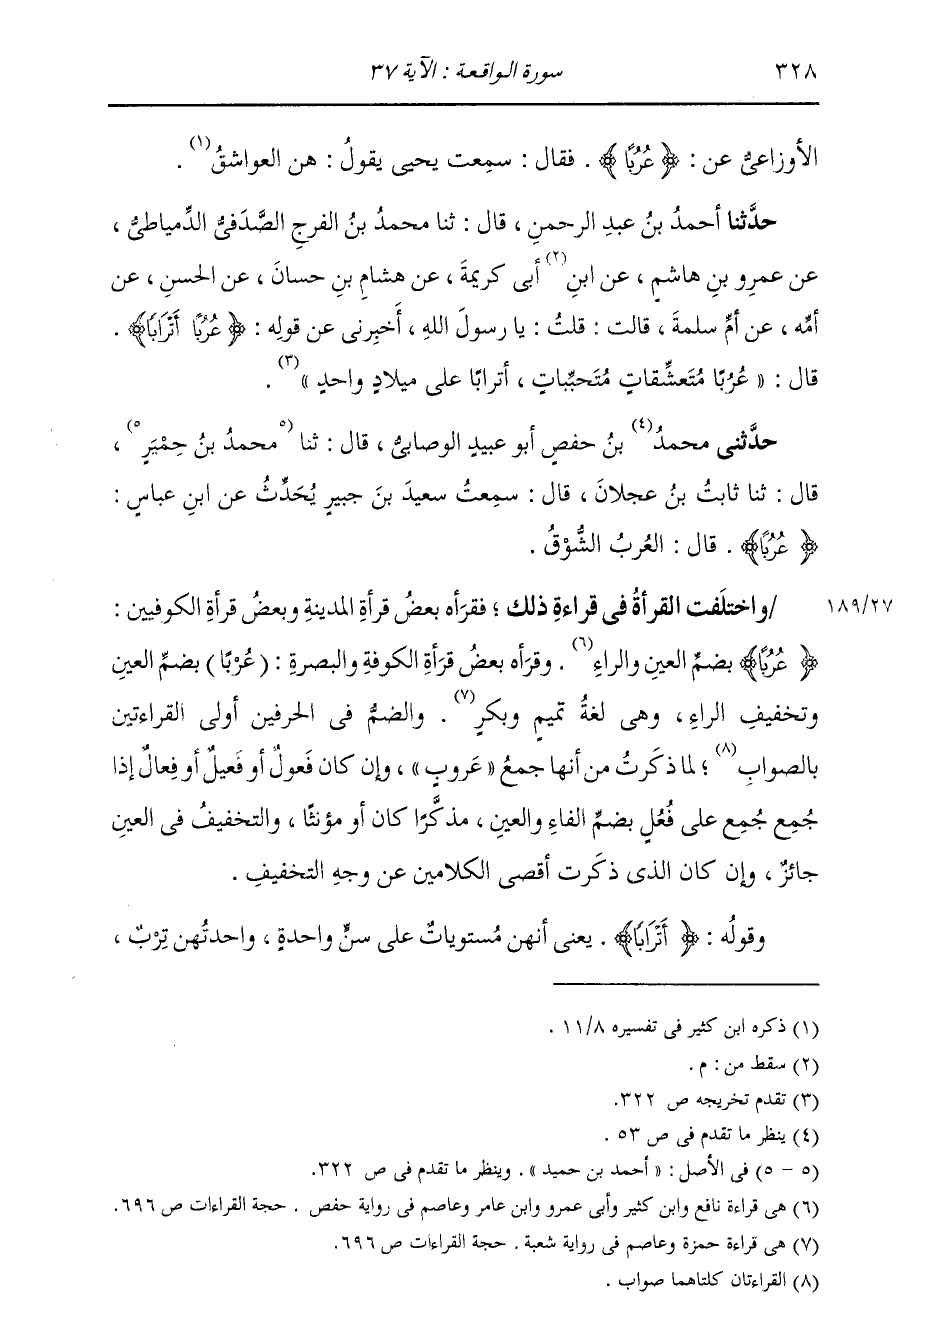 ٣٢٨ سورة الواقعة : الآية ٣٧
الأوزاعىُّ عن : ﴿ عُرُبًا ﴾ . فقال : سمِعت يحيى يقولُ : هن العواشقُ(١) .
حدَّثنا أحمدُ بنُ عبدِ الرحمنِ ، قال : ثنا محمدُ بنُ الفرجِ الصَّدَفىُّ الدِّمياطىُّ ،
عن عمرِو بنِ هاشمٍ ، عن ابنِ(٢) أبى كريمةَ ، عن هشامِ بنِ حسانَ ، عن الحسنِ ، عن
أمِّه ، عن أمِّ سلمةَ ، قالت : قلتُ : يا رسولَ اللهِ ، أَخبِرنى عن قولِه : ﴿ عُرُبًا أَتْرَابًا﴾ .
قال : « عُرُبًا مُتَعشِّقاتٍ مُتَحبِّباتٍ ، أترابًا على ميلادٍ واحدٍ »(٣) .
حدَّثنى محمدُ(٤) بنُ حفصٍ أبو عبيدٍ الوصابىُّ ، قال : ثنا (٥محمدُ بنُ حِمْيَرٍ٥) ،
قال : ثنا ثابتُ بنُ عجلانَ ، قال : سمِعتُ سعيدَ بنَ جبيرٍ يُحَدِّثُ عن ابنِ عباسٍ :
﴿ عُرُبًا﴾ . قال : العربُ الشُّوْقُ .
١٨٩/٢٧ /واختلَفت القرأةُ فى قراءةِ ذلك ؛ فقرَأه بعضُ قرأةِ المدينةِ وبعضُ قرأةِ الكوفيين :
﴿ عُرُبًا﴾ بضمِّ العينِ والراءِ(٦) . وقرَأه بعضُ قرَأةِ الكوفةِ والبصرةِ : (عُرْبًا) بضمِّ العينِ
وتخفيفِ الراءِ ، وهى لغةُ تميمٍ وبكرٍ(٧) . والضمُّ فى الحرفين أولى القراءتين
بالصوابِ(٨) ؛ لما ذكَرتُ من أنها جمعُ « عَروبٍ » ، وإن كان فَعولٌ أو فَعيلٌ أو فِعالٌ إذا
جُمِع جُمِع على فُعُلٍ بضمِّ الفاءِ والعينِ ، مذكَّرًا كان أو مؤنثًا ، والتخفيفُ فى العينِ
جائزٌ ، وإن كان الذى ذكَرت أقصى الكلامين عن وجهِ التخفيفِ .
وقولُه : ﴿ أَتْرَابًا﴾ . يعنى أنهن مُستوياتٌ على سنٍّ واحدةٍ ، واحدتُهن تِرْبٌ ،
(١) ذكره ابن كثير فى تفسيره ١١/٨ .
(٢) سقط من : م .
(٣) تقدم تخريجه ص ٣٢٢.
(٤) ينظر ما تقدم فى ص ٥٣ .
(٥ - ٥) فى الأصل : « أحمد بن حميد » . وينظر ما تقدم فى ص ٣٢٢.
(٦) هى قراءة نافع وابن كثير وأبى عمرو وابن عامر وعاصم فى رواية حفص . حجة القراءات ص ٦٩٦.
(٧) هى قراءة حمزة وعاصم فى رواية شعبة . حجة القراءات ص ٦٩٦.
(٨) القراءتان كلتاهما صواب .